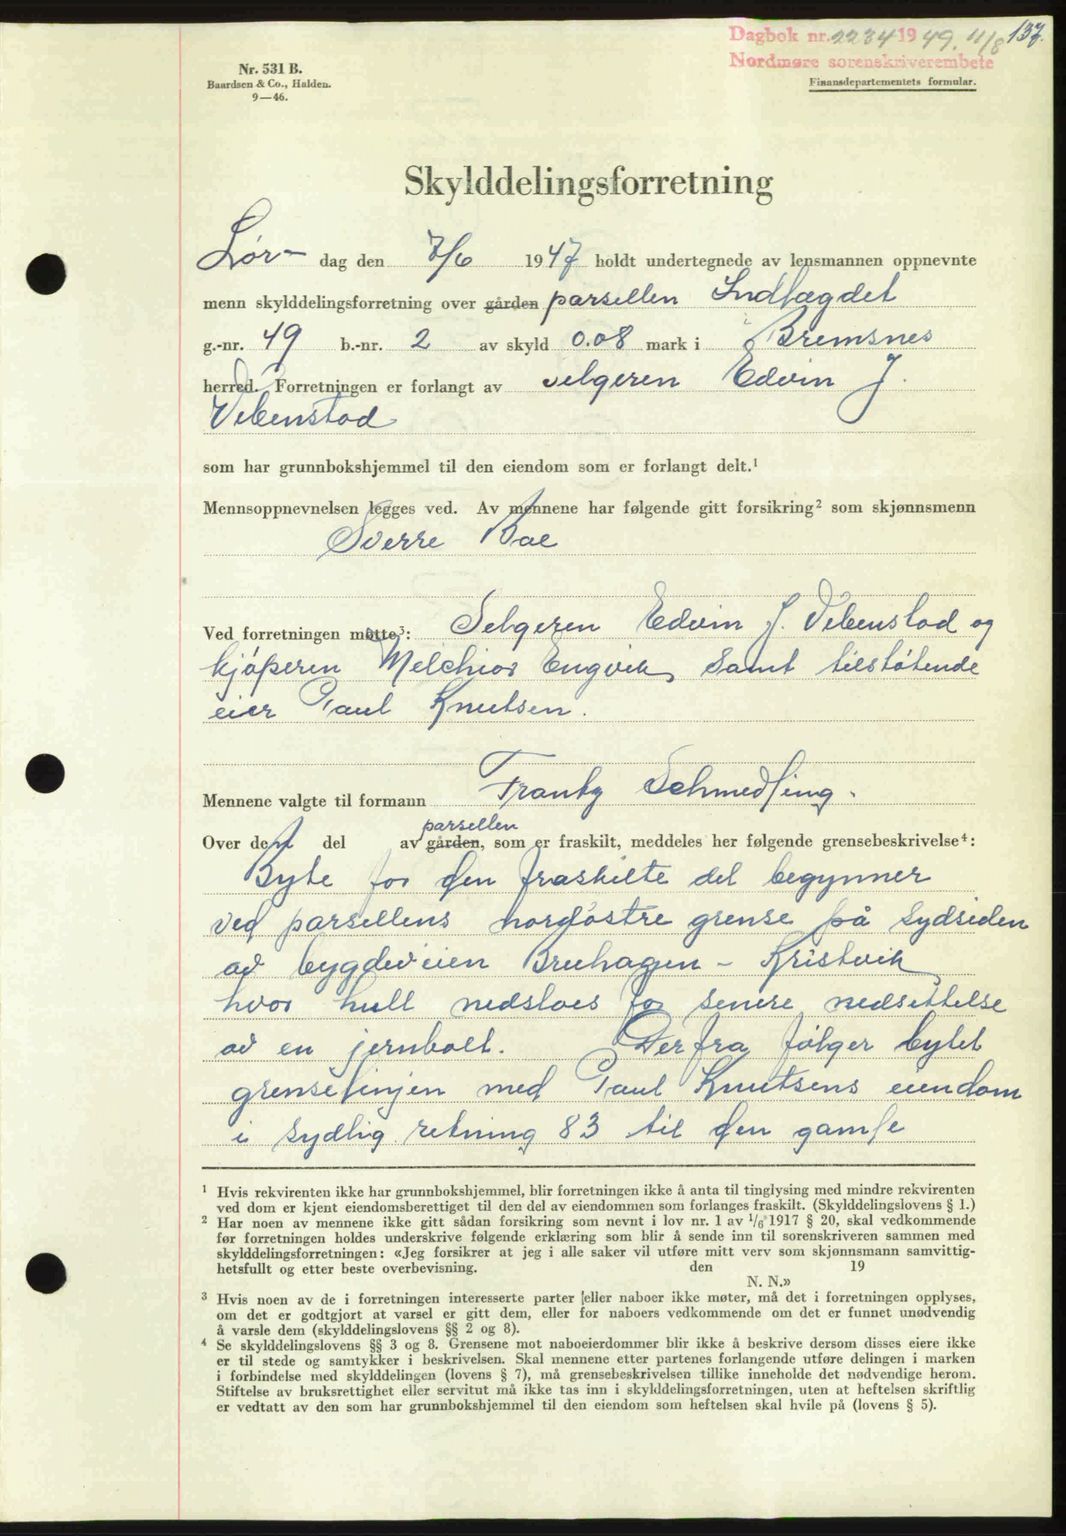 Dagbok nr. 2234 1949. 11/8 137.
Nordmøre sorenskriverembete
Finansdepartementets formular.
Nr. 531 B.
Baardsen & Co., Halden.
9—46.
Skylddelingsforretning
Lør- dag den 7/6 1947 holdt undertegnede av lensmannen oppnevnte
menn skylddelingsforretning over gården parsellen Indlægdet
g.-nr. 49 b.-nr. 2 av skyld 0.08 mark i Bremsnes
herred. Forretningen er forlangt av selgeren Edvin J.
Vebenstad
som har grunnbokshjemmel til den eiendom som er forlangt delt.¹
Mennsoppnevnelsen legges ved. Av mennene har følgende gitt forsikring² som skjønnsmenn
Sverre Bae
Ved forretningen møtte³: Selgeren Edvin J. Vebenstad og
kjöperen Melchior Engvik, samt tilstötende
eier Paul Knutsen.
Mennene valgte til formann Frantz Schmedling.
parsellen
Over den del av gården, som er fraskilt, meddeles her følgende grensebeskrivelse⁴:
Byte for den fraskilte del begynner
ved parsellens nordöstre grense på sydsiden
av bygdeveien Bruhagen - Kristvik
hvor hull nedsloes for senere nedsettelse
av en jernbolt. Derfra fölger bytet
grenselinjen med Paul Knutsens eiendom
i sydlig retning 83 til den gamle
¹ Hvis rekvirenten ikke har grunnbokshjemmel, blir forretningen ikke å anta til tinglysing med mindre rekvirenten
ved dom er kjent eiendomsberettiget til den del av eiendommen som forlanges fraskilt. (Skylddelingslovens § 1.)
² Har noen av mennene ikke gitt sådan forsikring som nevnt i lov nr. 1 av 1/6 1917 § 20, skal vedkommende
før forretningen holdes underskrive følgende erklæring som blir å sende inn til sorenskriveren sammen med
skylddelingsforretningen: «Jeg forsikrer at jeg i alle saker vil utføre mitt verv som skjønnsmann samvittig-
hetsfullt og etter beste overbevisning. den 19
N. N.»
³ Hvis noen av de i forretningen interesserte parter eller naboer ikke møter, må det i forretningen opplyses,
om det er godtgjort at varsel er gitt dem, eller for naboers vedkommende om det er funnet unødvendig
å varsle dem (skylddelingslovens §§ 2 og 8).
⁴ Se skylddelingslovens §§ 3 og 8. Grensene mot naboeierdommer blir ikke å beskrive dersom disses eiere ikke
er til stede og samtykker i beskrivelsen. Skal mennene etter partenes forlangende utføre delingen i marken
i forbindelse med skylddelingen (lovens § 7), må grensebeskrivelsen tillike inneholde det nødvendige herom.
Stiftelse av bruksrettighet eller servitut må ikke tas inn i skylddelingsforretningen, uten at heftelsen skriftlig
er vedtatt av den som har grunnbokshjemmel til den eiendom som heftelsen skal hvile på (lovens § 5).